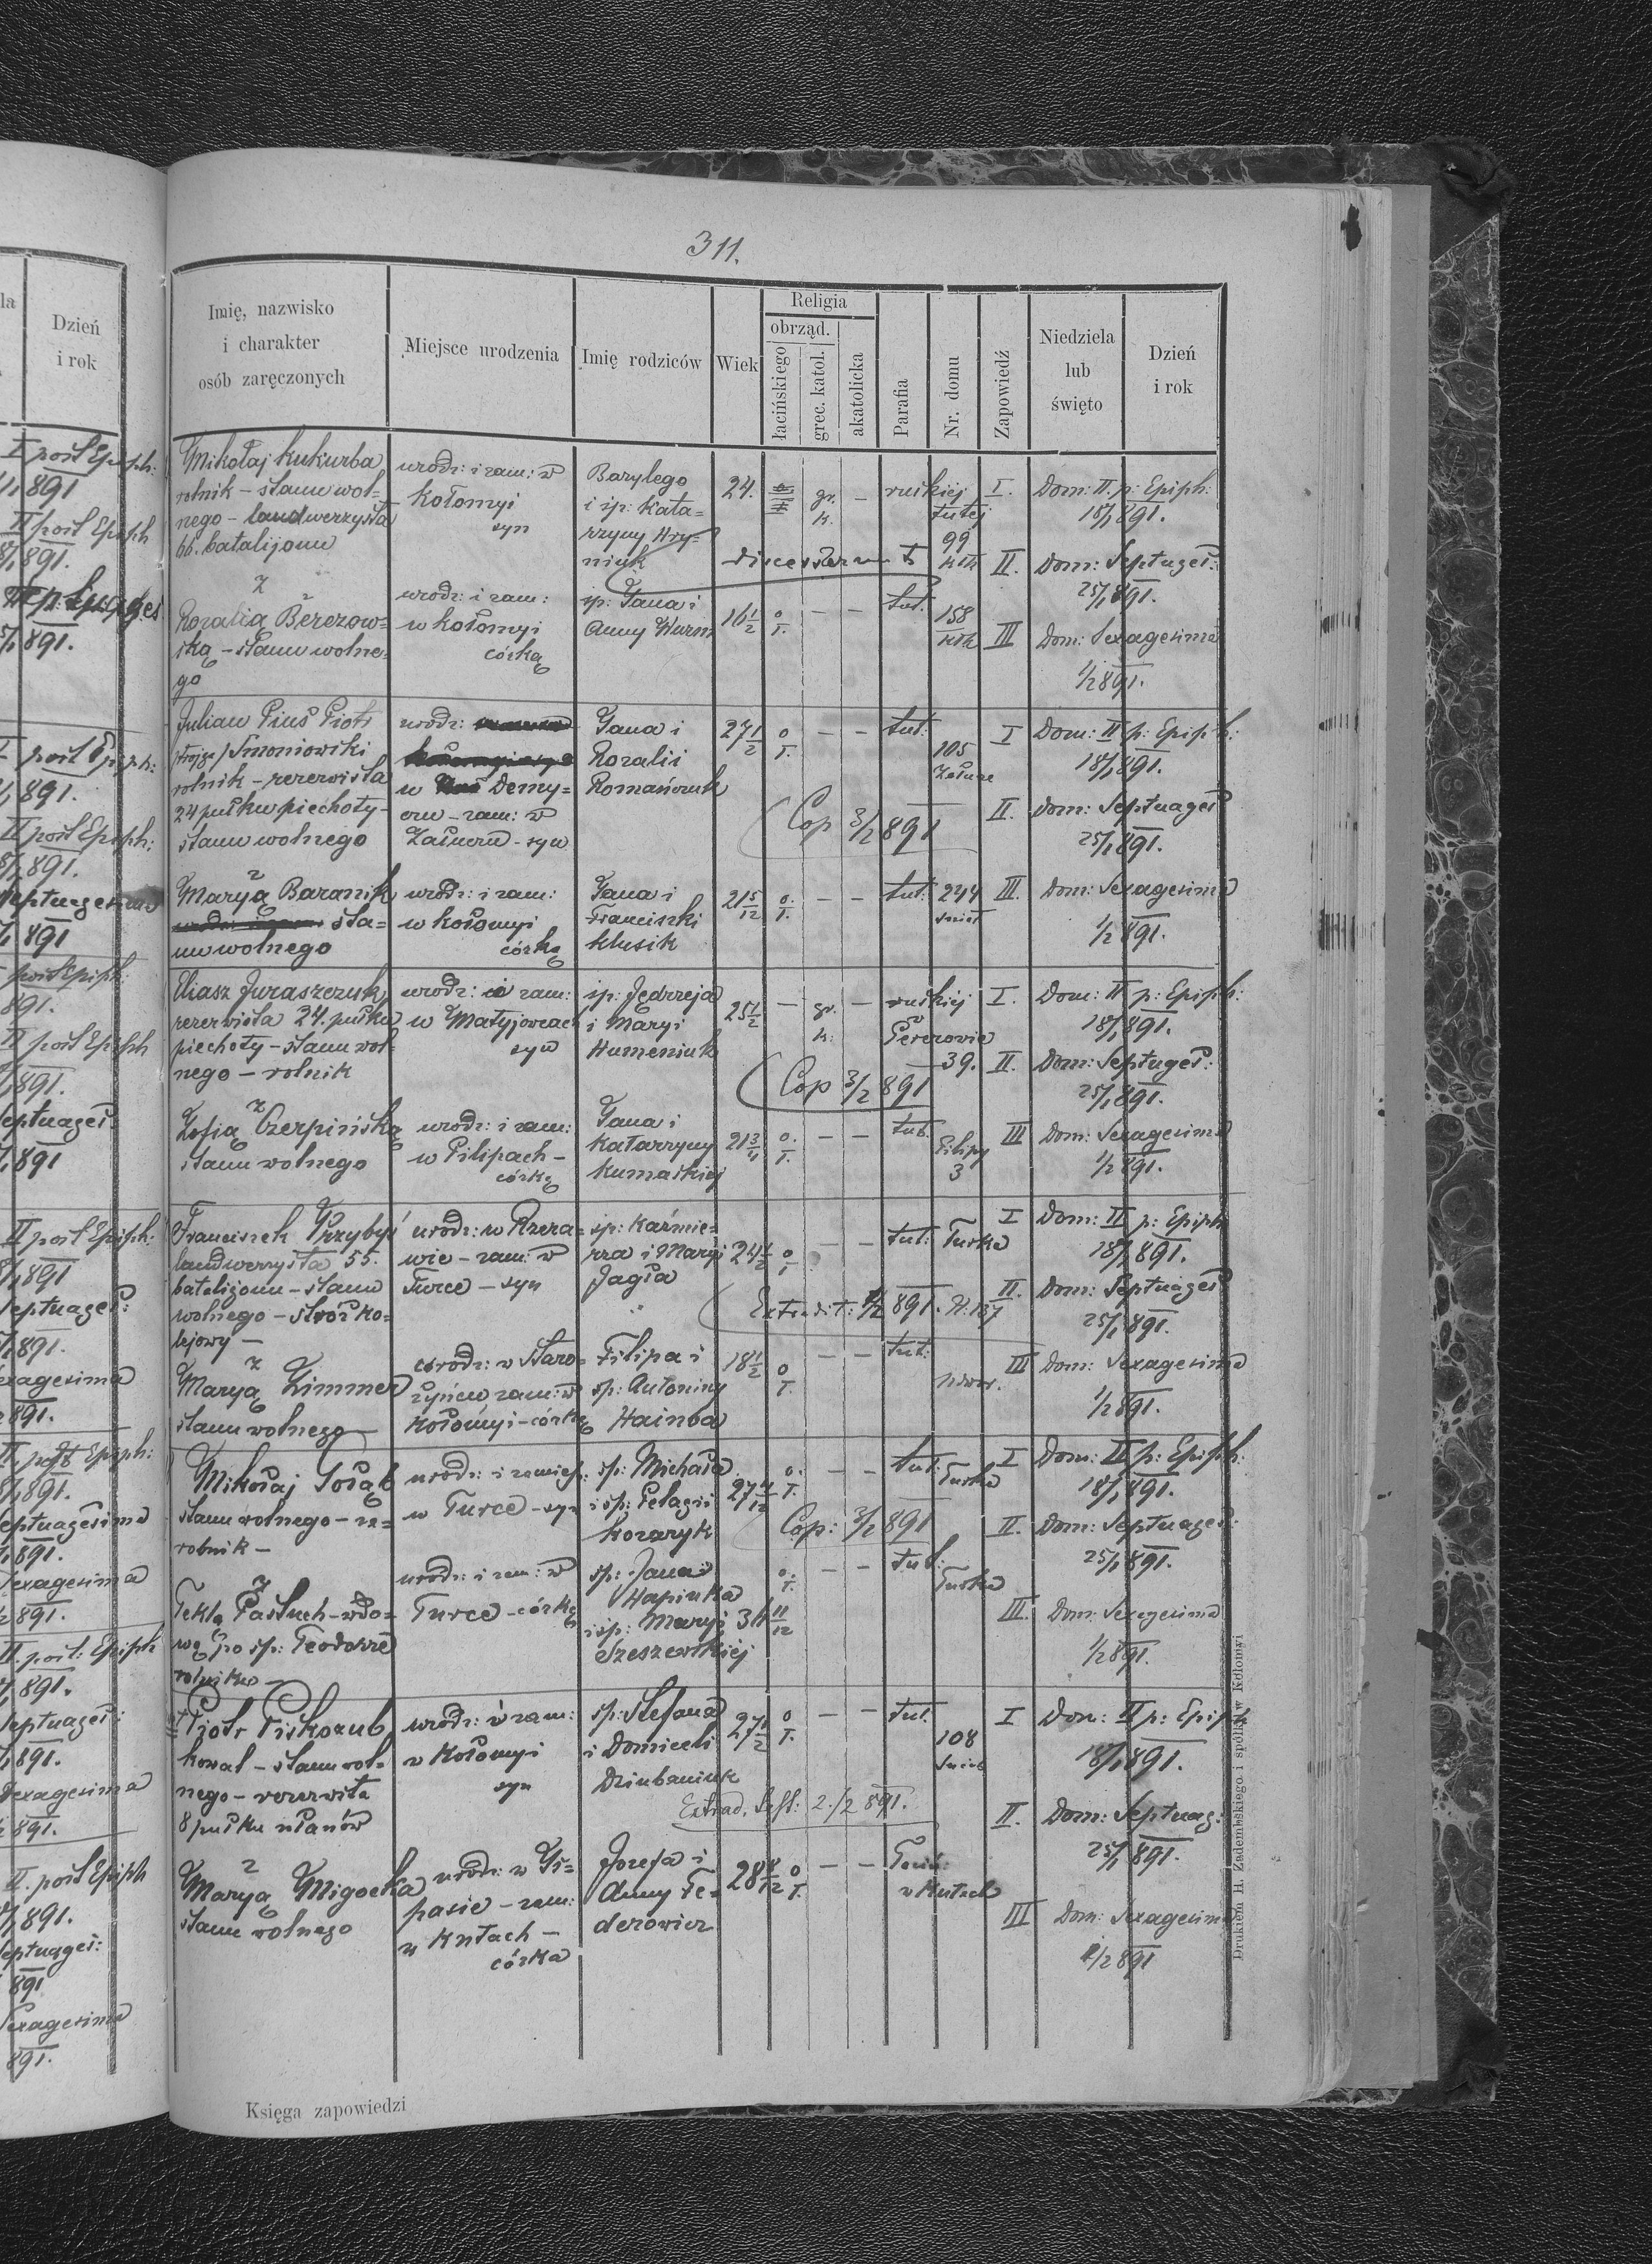 311.
Imię, nazwisko
i charakter
osób zaręczonych
Miejsce urodzenia
Imię rodziców
Wiek
Religia
obrząd.
łacińskiego
grec. katol.
akatolicka
Parafia
Nr. domu
Zapowiedź
Niedziela
lub
święto
Dzień
i rok
Mikołaj Kukurba
rolnik - stanu wol=
nego - landwerzysta
66. batalijonu
z
urodz: i zam: w
Kołomyi
syn
Barylego
i śp: Kata=
rzyny Hry=
niuk
24.
gr.
k.
ruskiej
tutej
99
I. Dom: II. p: Epiph:
18/1 891.
Discesserunt
II. Dom: Septuages:
25/1 891.
Rozalią Berezow=
ską - stanu wolne=
go
urodz: i zam:
w Kołomyi
córką
śp: Jana i
Anny Wurm
16 1/2
o
ł.
tut.
158
III Dom: Sexagesima
1/2 891.
Julian Pius Piotr
Smoniowski
rolnik - rezerwista
24 pułku piechoty -
stanu wolnego
z
urodz:
w Demy=
czu - zam: w
Załuczu - syn
Jana i
Rozalii
Romańczuk
27 1/2
o
ł.
tut.
105
I Dom: II p: Epiph:
18/1 891.
Cop 3/2 891
II. Dom: Septuages
25/1 891.
Maryą Baranik
sta=
nu wolnego
urodz: i zam:
w Kołomyi
córką
Jana i
Franciszki
Klusik
21 5/12
o.
ł.
tut.
244
III. Dom: Sexagesima
1/2 891.
Eliasz Juraszczuk
rezerwista 24. pułku
piechoty - stanu wol=
nego - rolnik
z
urodz: i zam:
w Matyjowcach
syn
śp: Jędrzeja
i Maryi
Humeniuk
25 1/2
gr.
k.
ruskiej
39.
I. Dom: II p: Epiph:
18/1 891.
Cop 3/2 891
II. Dom: Septuges:
25/1 891.
Zofią Czerpińską
stanu wolnego
urodz: i zam:
w Pilipach -
córką
Jana i
Katarzyny
Kumaskiej
21 3/4
o.
ł.
tut.
Pilipy
3
III Dom: Sexagesima
1/2 891.
Franciszek Przybyś
landwerzysta 55.
batalijonu - stanu
wolnego - stróż ko=
lejowy -
z
urodz: w Rzeza=
wie - zam: w
Turce - syn
śp: Kaźmie=
rza i Maryi
Jagła
24 1/2
o
ł.
tut:
Turka
I Dom: II p: Epiph
18/1 891.
Extradit: 1/2 891.
II. Dom: Septuages
25/1 891.
Maryą Zimmer
stanu wolnego
urodz: w Staro=
zyńcu zam: w
Kołomyi - córką
Filipa i
śp: Antoniny
Hainba
18 1/2
o
ł.
tut:
III Dom: Sexagesima
1/2 891.
Mikołaj Sołąb
stanu wolnego - za=
robnik -
z
urodz: i zamiesz:
w Turce - syn
śp: Michała
i śp: Pelagii
Kozaryk
o.
ł.
tut:
Turka
I Dom: II p: Epiph:
18/1 891.
Cop: 3/2 891
II. Dom: Septuages:
25/1 891.
Teklą Pastuch - wdo=
wą po śp: Teodorze
rolniku -
urodz: i zam: w
Turce - córką
śp: Jana
Hapiuka
i śp: Maryi
Szeszewskiej
34 11/12
o.
ł.
tut:
Turka
III. Dom: Sexagesima
1/2 891.
Piotr Piskozub
kowal - stanu wol=
nego - rezerwista
8 pułku ułanów
z
urodz: i zam:
w Kołomyi
syn
śp: Stefana
i Domiceli
Dziubaniuk
27 1/2
o
ł.
tut.
108
I Dom: II p: Epiph
18/1 891.
Extrad. 2./2 891.
II. Dom: Septuag:
25/1 891.
Maryą Migocka
stanu wolnego
zam:
w Kutach -
córka
Józefa i
Anny Te=
derowicz
o
ł.
w Kutach
III Dom: Sexagesima
1/2 891
Księga zapowiedzi
Drukiem H. Zadembskiego i spółki w Kołomyi
Dzień
i rok